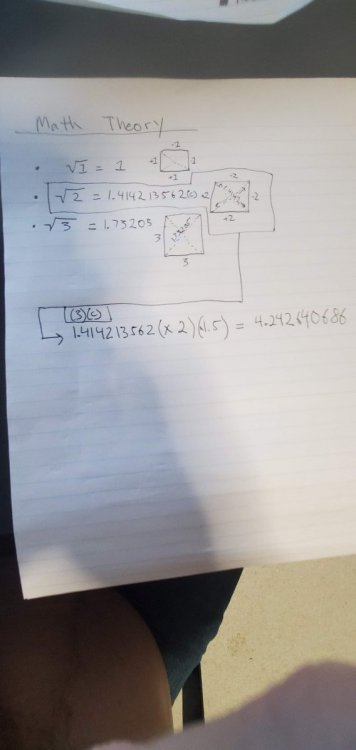 Math Theory
• √1 = 1
-1
+1
-1
+1
• √2 = 1.414213562(c)
-2
+2
-2
+2
• √3 = 1.73205
3
1.73205
3
(3)(c)
1.414213562(x2)(1.5) = 4.242640686